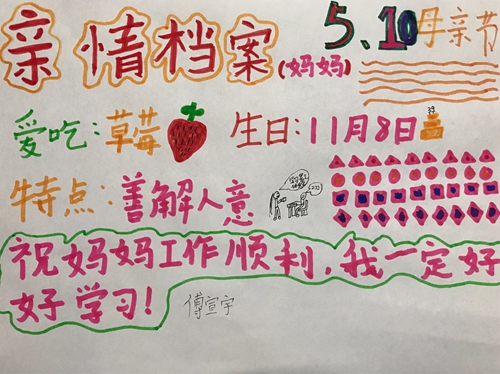 亲情档案(妈妈) 5、10母亲节
爱吃:草莓 生日:11月8日
特点:善解人意
祝妈妈工作顺利,我一定好
好学习!
傅宣宇